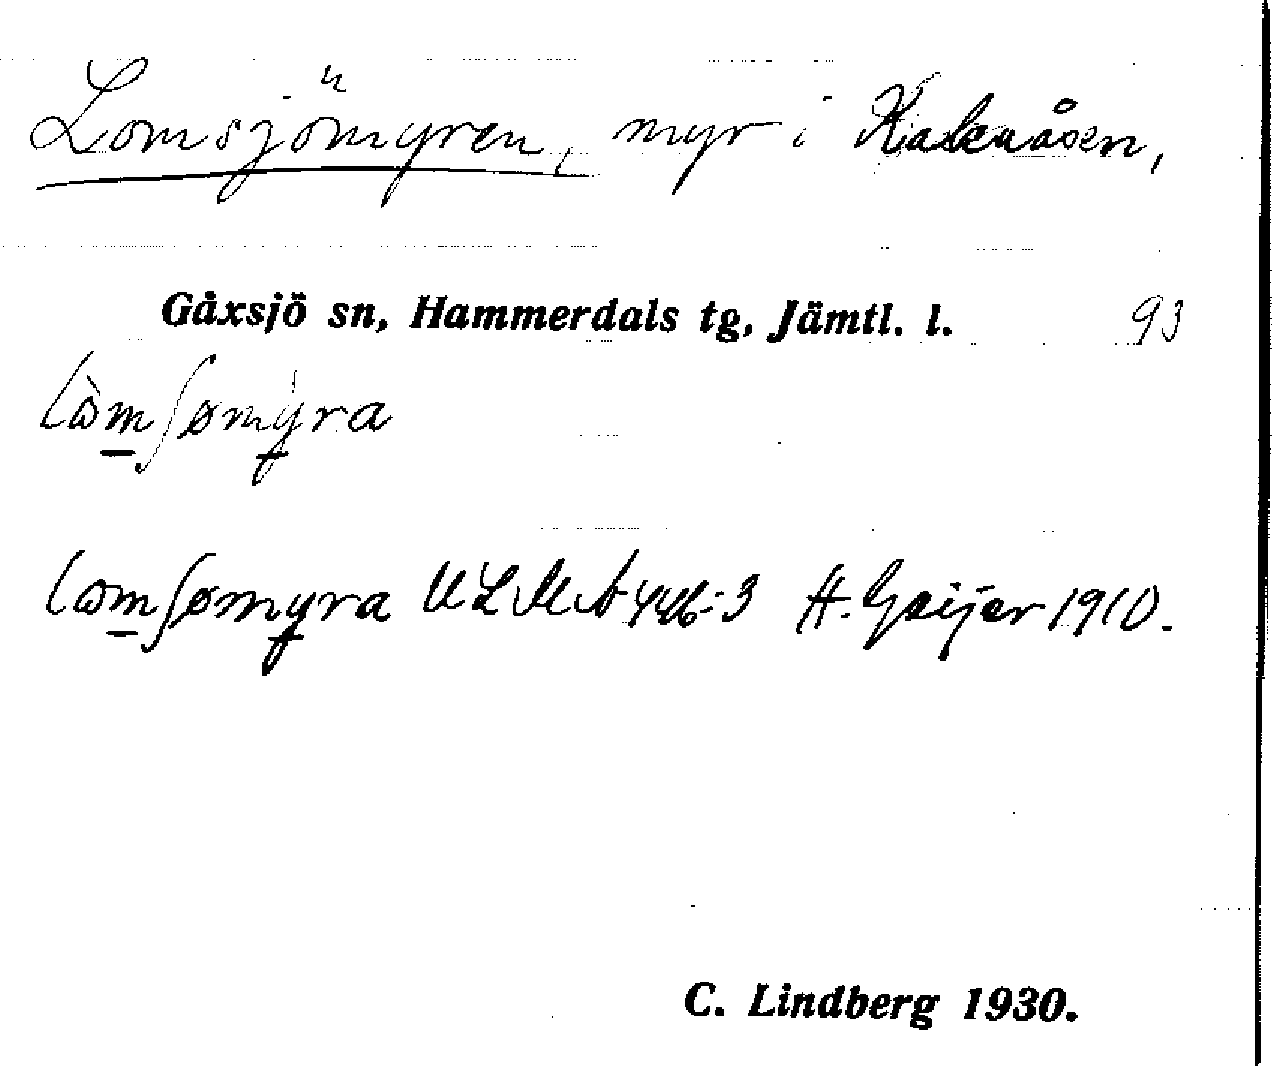 Lomsjömyren, myr i Kakuåsen,
Gåxsjö sn, Hammerdals tg, Jämtl. l. 93
lòmʃømyra
lomʃømyra ULMA 446:3 H. Geijer 1910.
C. Lindberg 1930.